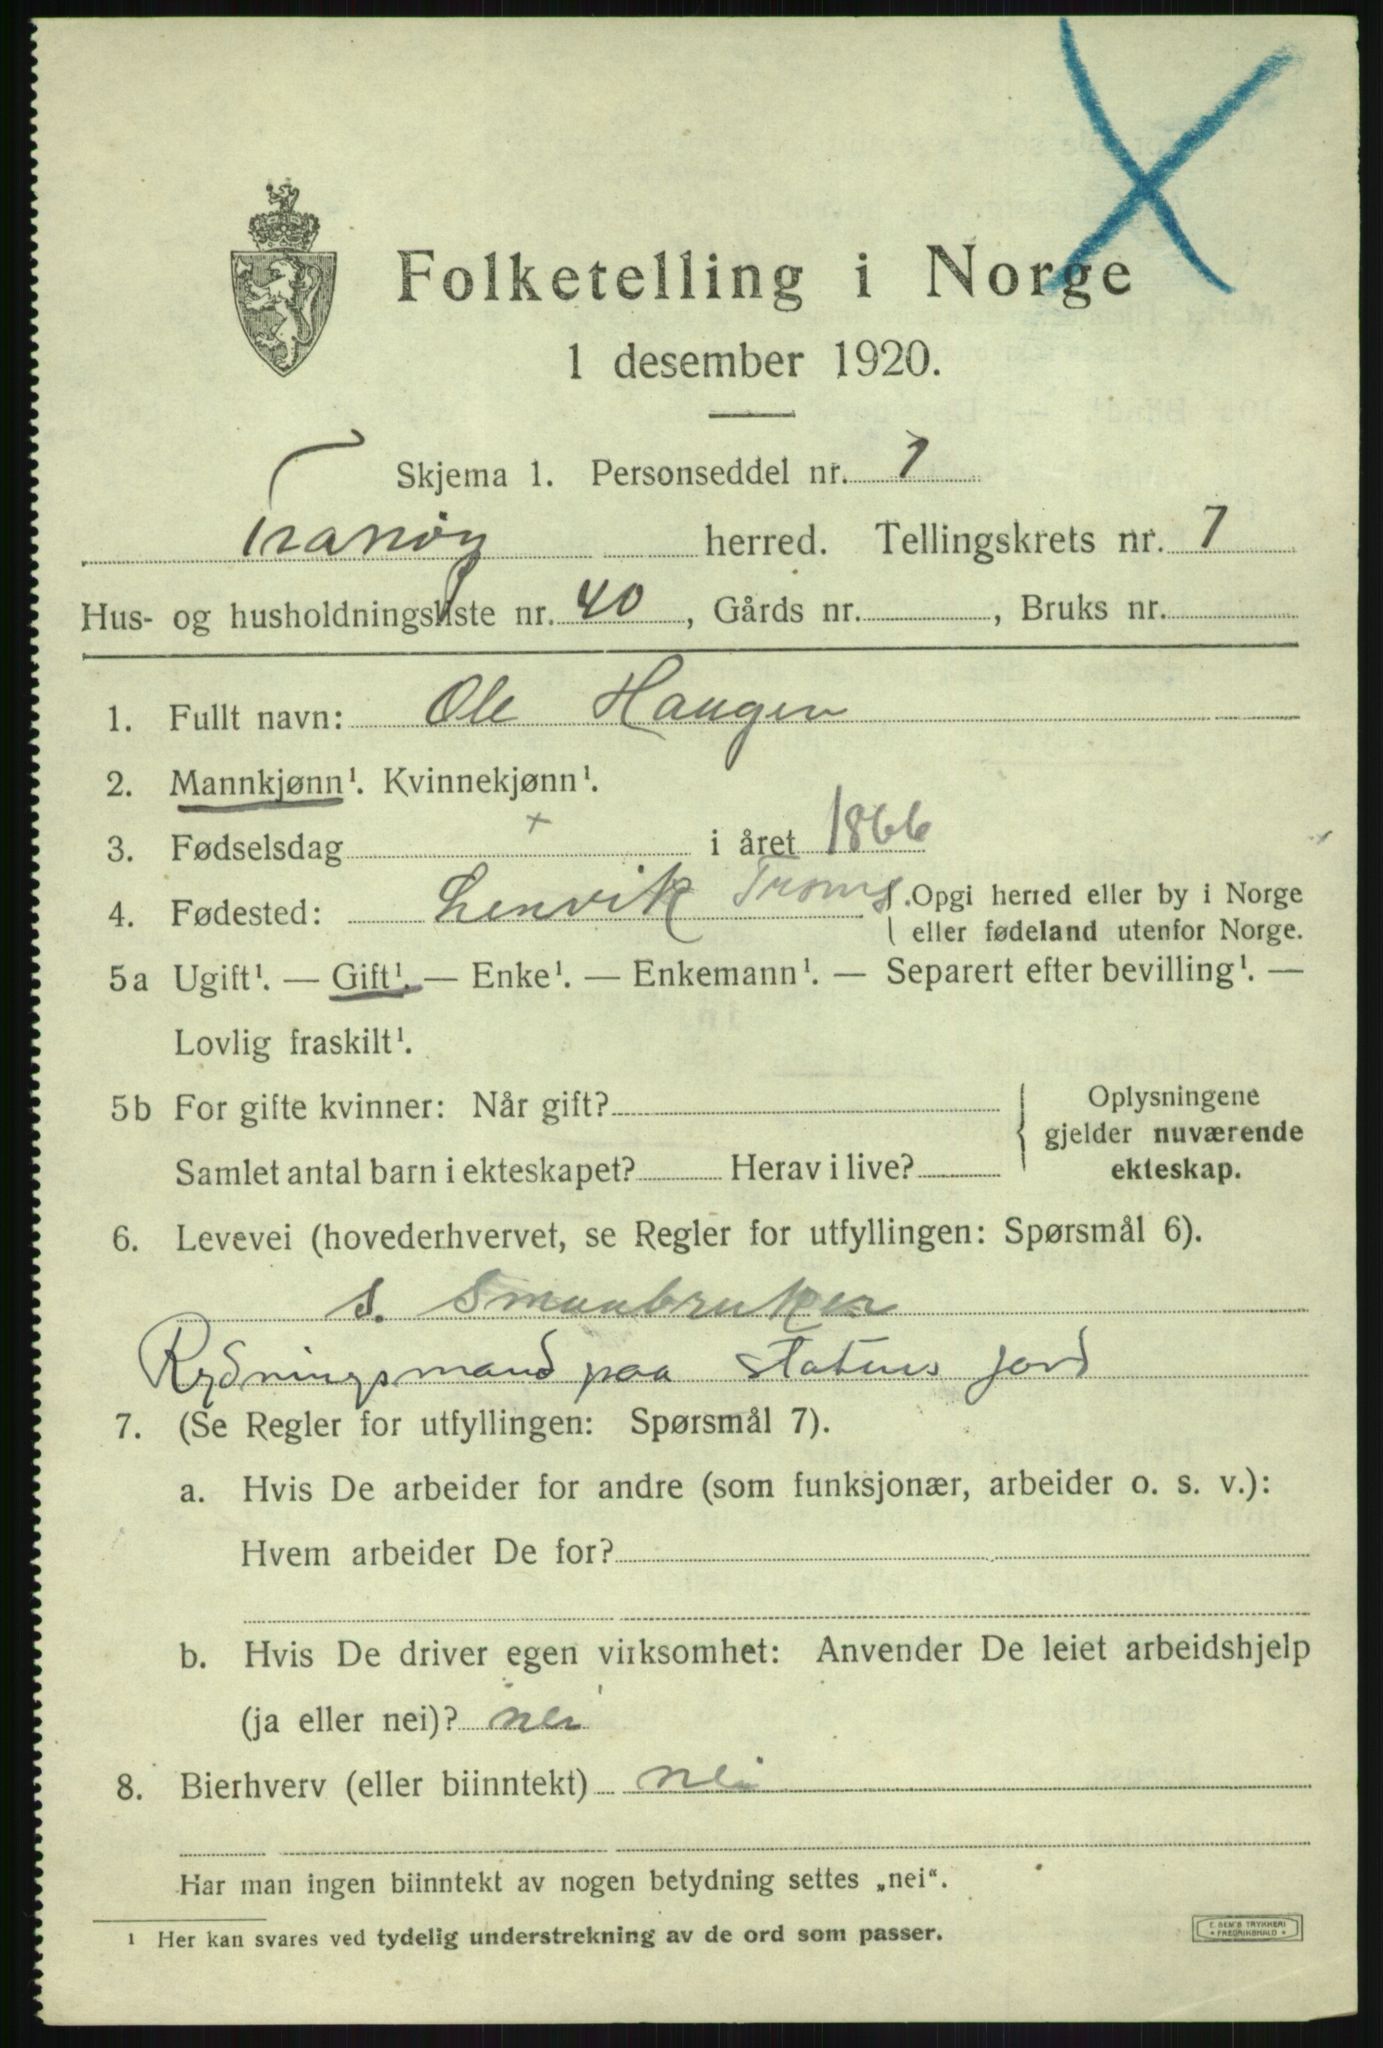 Folketelling i Norge
1 desember 1920.
Skjema 1. Personseddel nr. 1
Tranøy herred. Tellingskrets nr. 7
Hus- og husholdningsliste nr. 40, Gårds nr. , Bruks nr.
1. Fullt navn: Ole Haugen
2. Mannkjønn¹. Kvinnekjønn¹.
3. Fødselsdag + i året 1866
4. Fødested: Lenvik Troms Opgi herred eller by i Norge
eller fødeland utenfor Norge.
5a Ugift¹. — Gift¹. — Enke¹. — Enkemann¹. — Separert efter bevilling¹. —
Lovlig fraskilt¹.
5b For gifte kvinner: Når gift? Oplysningene
gjelder nuværende
Samlet antal barn i ekteskapet? Herav i live? ekteskap.
6. Levevei (hovederhvervet, se Regler for utfyllingen: Spørsmål 6).
S. Smaabruker
Rydningsmand paa statens jord
7. (Se Regler for utfyllingen: Spørsmål 7).
a. Hvis De arbeider for andre (som funksjonær, arbeider o. s. v.):
Hvem arbeider De for?
b. Hvis De driver egen virksomhet: Anvender De leiet arbeidshjelp
(ja eller nei)? nei
8. Bierhverv (eller biinntekt) nei
Har man ingen biinntekt av nogen betydning settes „nei“.
¹ Her kan svares ved tydelig understrekning av de ord som passer.
E. SEM'S TRYKKERI
FREDRIKSHALD